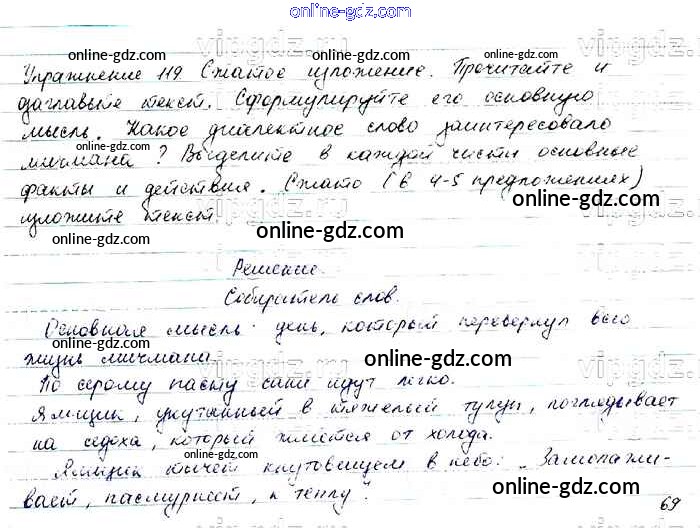 online-gdz.com
online-gdz.com online-gdz.com
Упражнение 119 Сжатое изложение. Прочитайте и
озаглавьте текст. Сформулируйте его основную
мысль. Какое диалектное слово заинтересовало
мичмана? Выделите в каждой части основные
факты и действия. Сжато (в 4-5 предложениях)
изложите текст.
online-gdz.com online-gdz.com
Решение.
Собиратель слов.
Основная мысль - день, который перевернул всю
жизнь мичмана.
online-gdz.com
По серому насту сани идут легко.
Ямщик, укутанный в тяжелый тулуп, поглядывает
на седока, который жмется от холода.
Ямщик тычет кнутовищем в небо: "Замолажи-
вает, пасмурнеет, к теплу".
online-gdz.com online-gdz.com
69